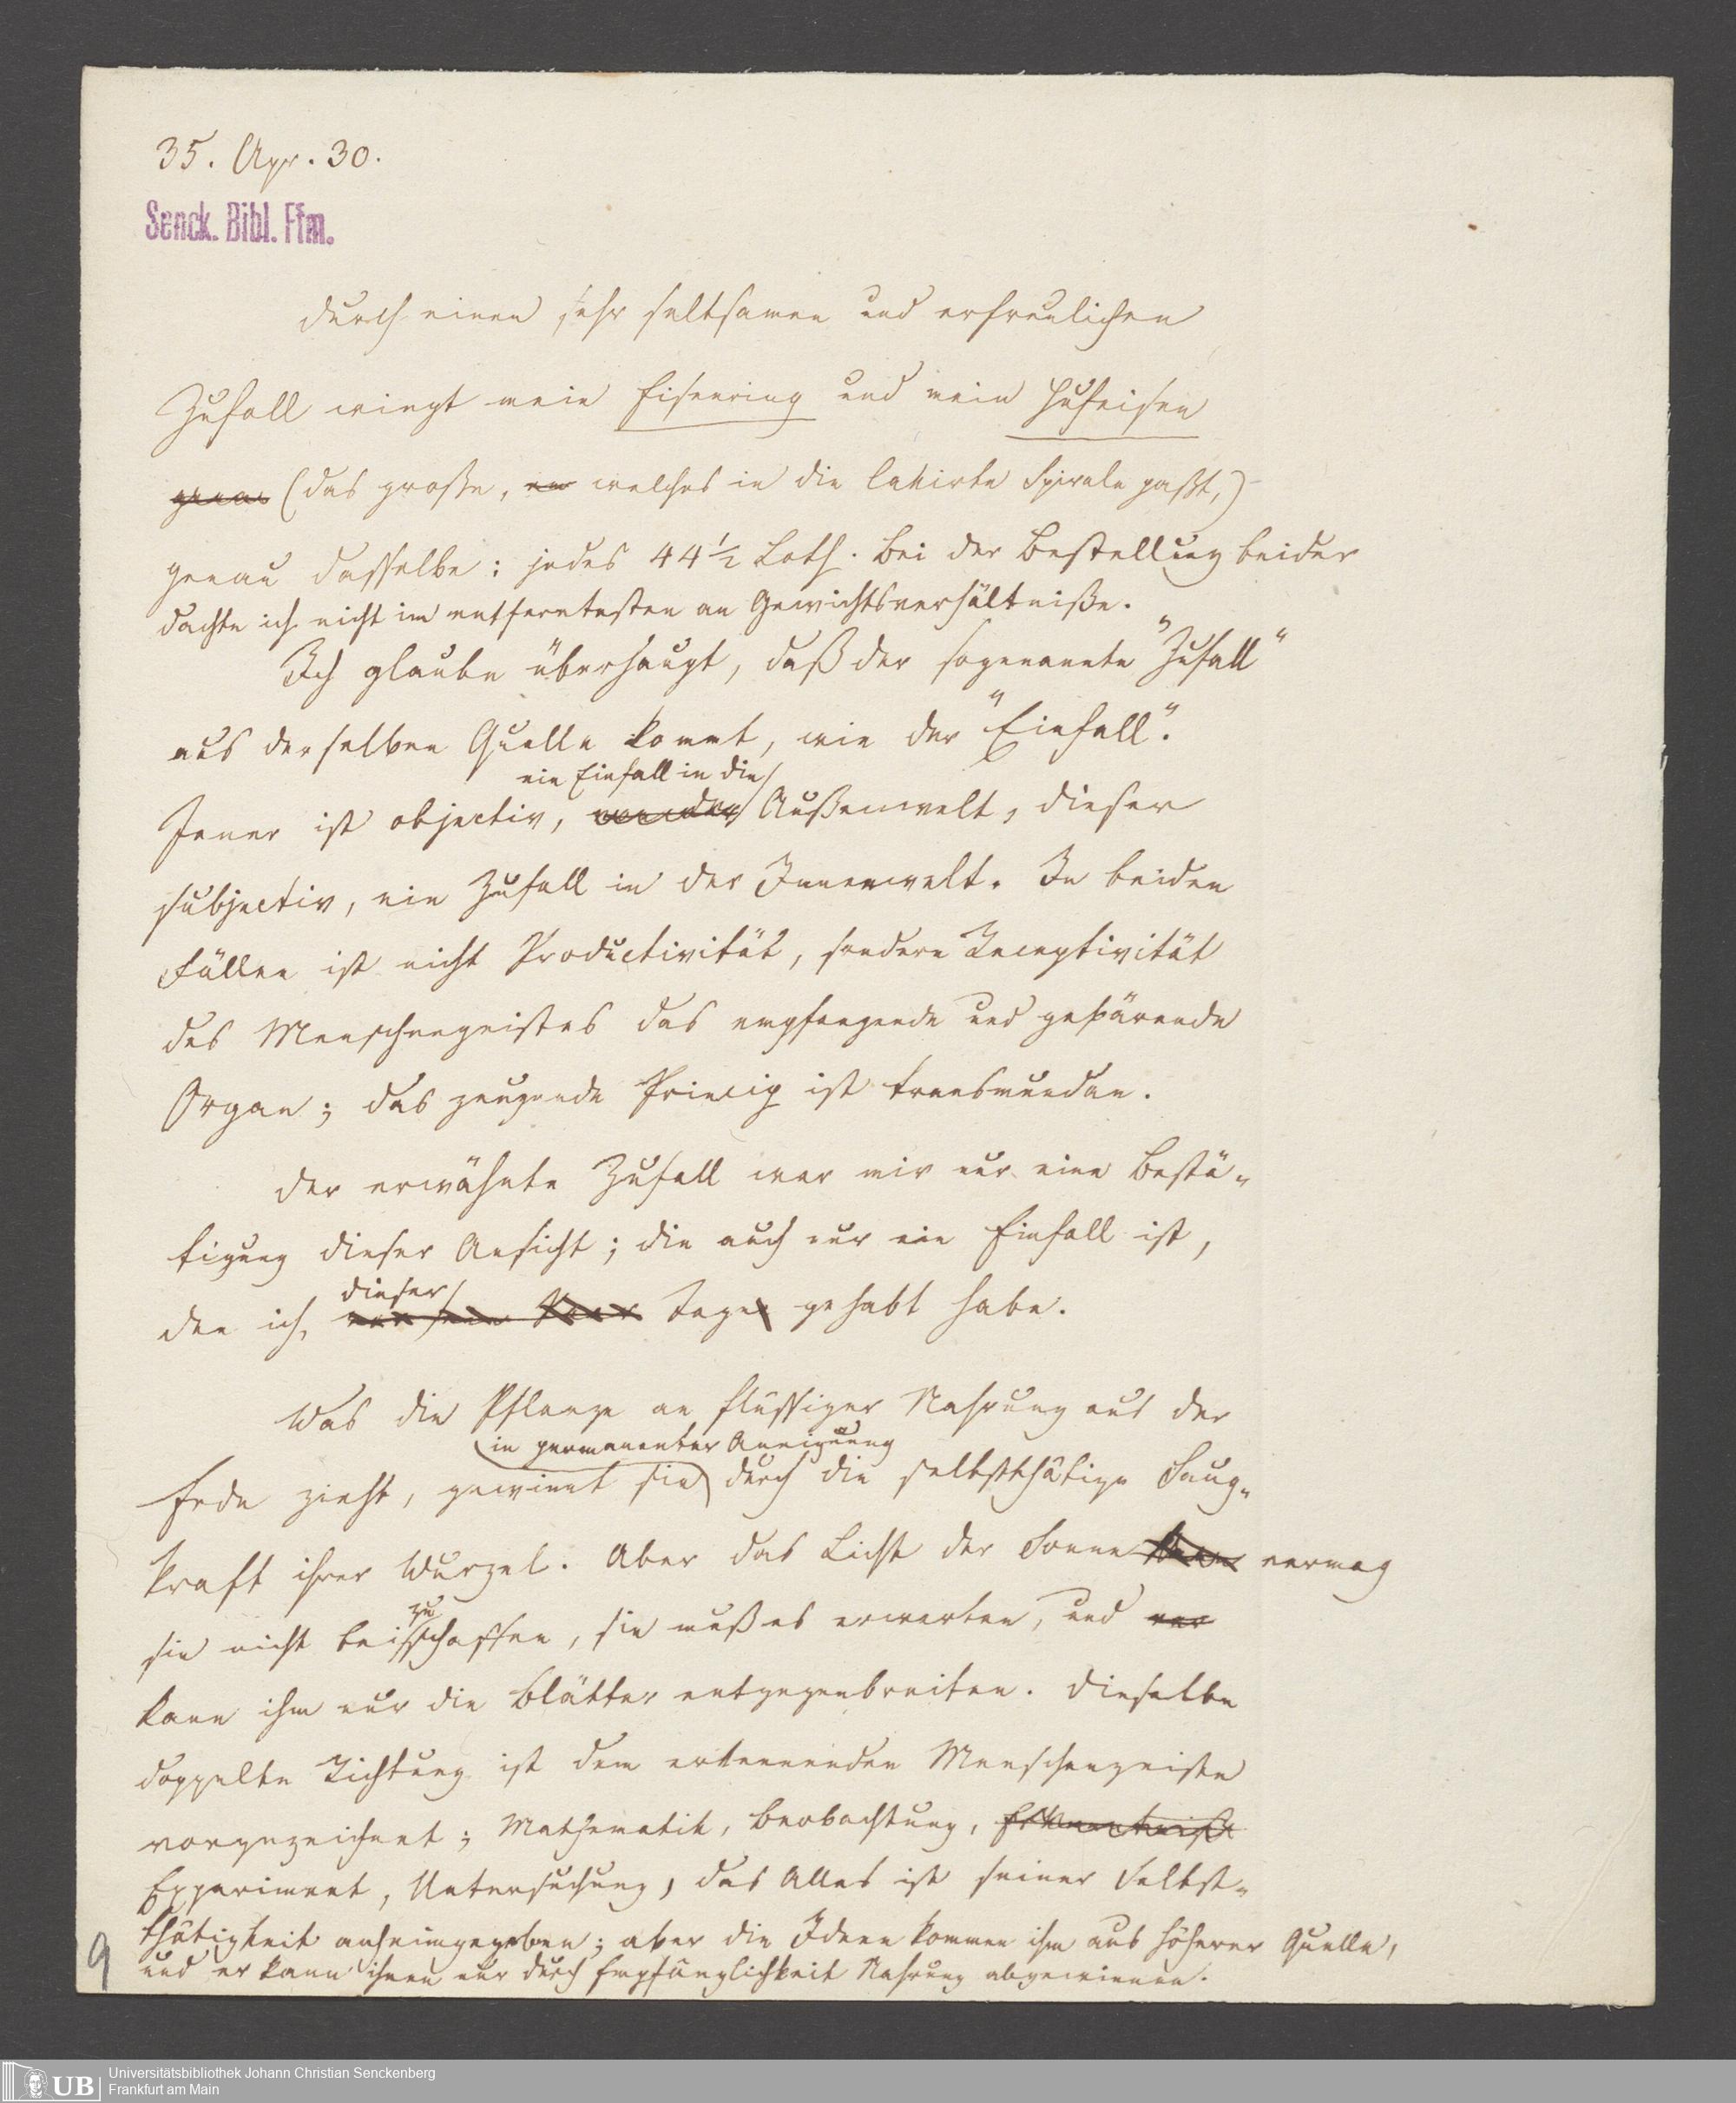 35. Apr. 30.
Senck. Bibl. Ffm.
Durch einen sehr seltsamen und erfreulichen
Zufall wiegt mein Eisenring und mein Hufeisen
genau (das große, welches in die lakirte Spirale paßt,)
genau dasselbe: jedes 44 1/2 Loth. Bei der Bestellung beider
dachte ich nicht im entferntesten an Gewichtsverhältniße.
Ich glaube überhaupt, daß der sogenannte "Zufall"
aus derselben Quelle kommt, wie der "Einfall".
ein Einfall in die
Jener ist objectiv, Außenwelt, dieser
subjectiv, ein Zufall in der Innenwelt. In beiden
Fällen ist nicht Productivität, sondern Receptivität
des Menschengeistes das empfangende und gebärende
Organ; das zeugende Princip ist transmundan.
Der erwähnte Zufall war mir nur eine Bestä-
tigung dieser Ansicht; die auch nur ein Einfall ist,
dieser
den ich Tage gehabt habe.
Was die Pflanze an flüssiger Nahrung aus der
in permanenter Aneignung
Erde zieht, gewinnt sie durch die selbstthätige Saug-
kraft ihrer Wurzel. Aber das Licht der Sonne kann vermag
zu
sie nicht beischaffen, sie muß es erwarten, und
kann ihm nur die Blätter entgegenbreiten. Dieselbe
doppelte Richtung ist dem erkennenden Menschengeiste
vorgezeichnet; Mathematik, Beobachtung, Erkenntniß
Experiment, Untersuchung, das Alles ist seiner Selbst-
thätigkeit anheimgegeben; aber die Ideen kommen ihm aus höherer Quelle,
und er kann ihnen nur durch Empfänglichkeit Nahrung abgewinnen.
9
UB
Universitätsbibliothek Johann Christian Senckenberg
Frankfurt am Main